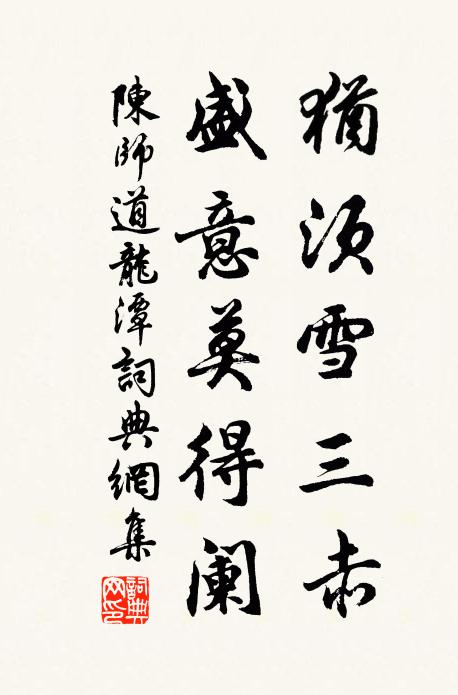 猶須雪三赤
盛意莫得闌
陳師道龍潭詞典網集
詞典網印